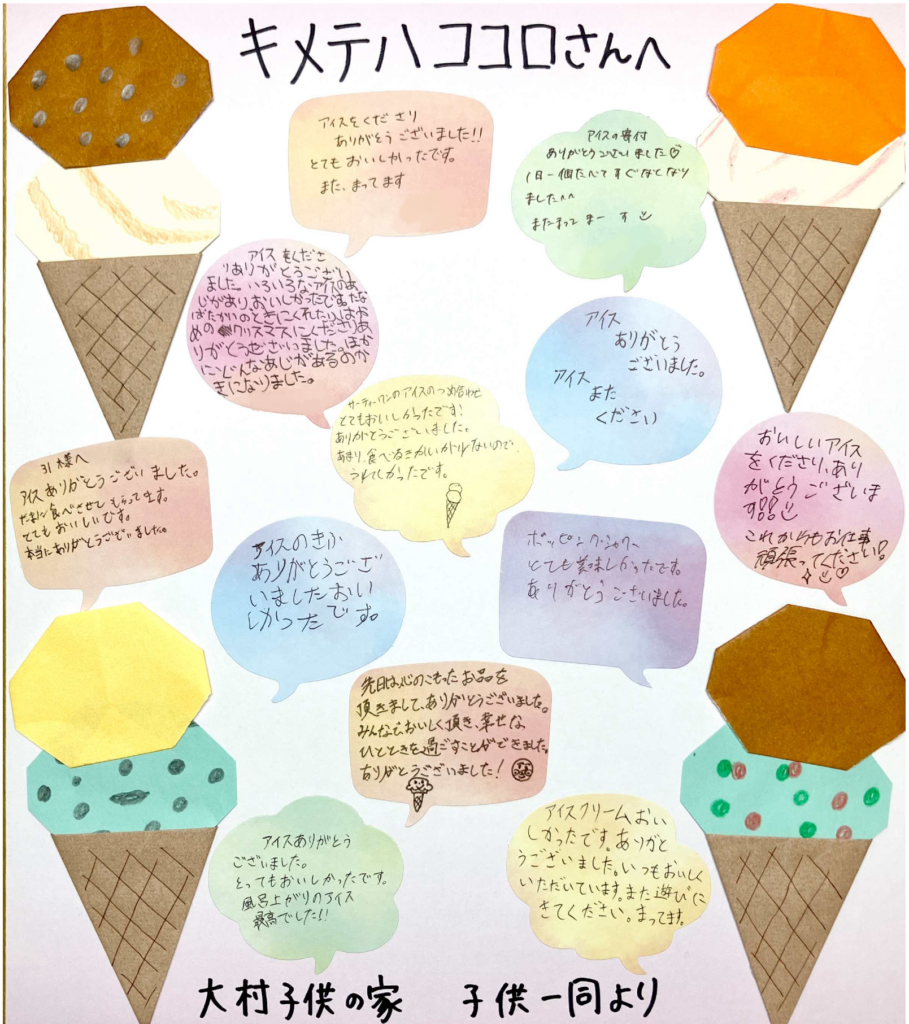 キメテハココロさんへ
アイスをくださり
ありがとうございました!!
とてもおいしかったです。
また、まってます
アイスの寄付
ありがとうございました♡
1日一個たべてすぐなくなり
ました^^
またまってまーす
アイスをくださ
りありがとうござい
ました。いろいろなアイスのあ
じがあり、おいしかったです。たな
ばたかいのときにくれたり、はや
めのクリスマスにくださりあ
りがとうございました。ほか
にどんなあじがあるのか
きになりました。
アイス
ありがとう
ございました。
アイス
また
ください
サーティーワンのアイスのつめ合わせ
とてもおいしかったです!
ありがとうございました。
あまり食べるきかいが少ないので、
うれしかったです。
31様へ
アイスありがとうございました。
たまに食べさせてもらってます。
とてもおいしいです。
本当にありがとうございました。
おいしいアイス
をくださり、あり
がとうございま
す
これからもお仕事
頑張ってください!
アイスのきふ
ありがとうござ
いましたおい
しかったです。
ポッピングシャワー
とても美味しかったです。
ありがとうございました。
先日は心のこもったお品を
頂きまして、ありがとうございました。
みんなでおいしく頂き、幸せな
ひとときを過ごすことができました。
ありがとうございました!
アイスありがとう
ございました。
とってもおいしかったです。
風呂上がりのアイス
最高でした!!
アイスクリームおい
しかったです。ありがと
うございました。いつもおいしく
いただいています。また遊びに
きてください。まってます。
大村子供の家 子供一同より